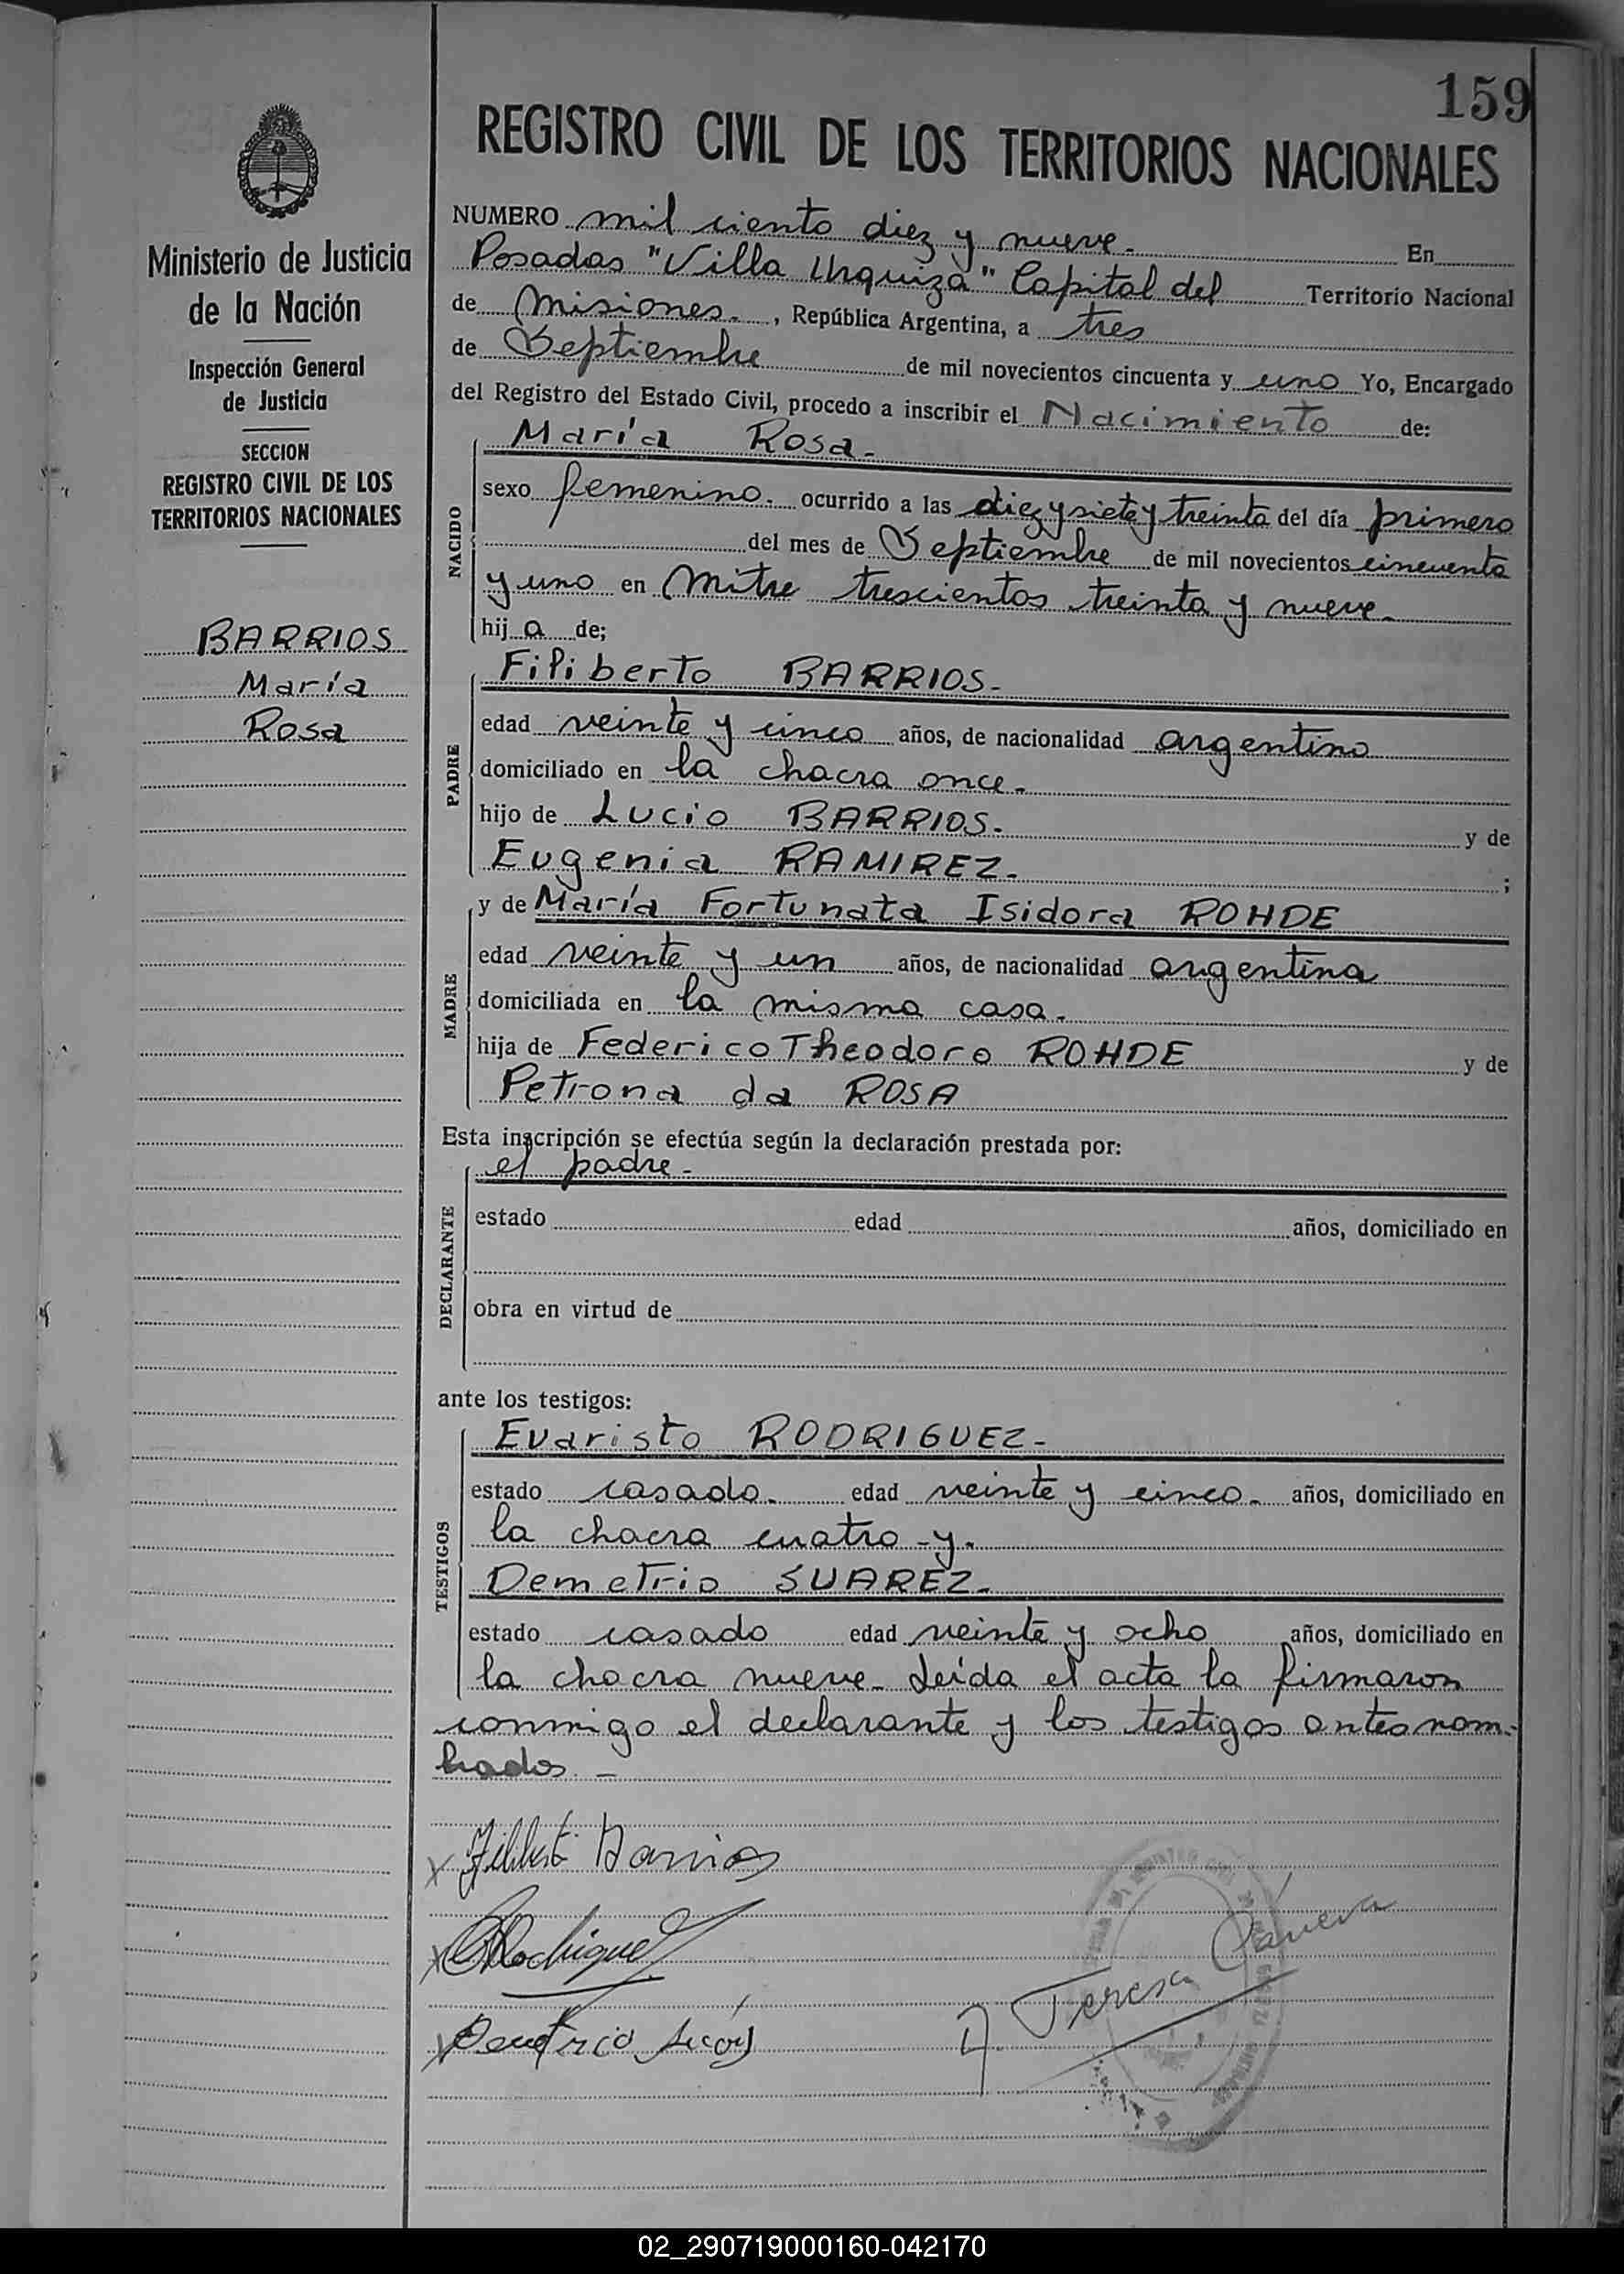 159
REGISTRO CIVIL DE LOS TERRITORIOS NACIONALES
Ministerio de Justicia
de la Nación
Inspección General
de Justicia
SECCION
REGISTRO CIVIL DE LOS
TERRITORIOS NACIONALES
BARRIOS
María
Rosa
NUMERO mil ciento diez y nueve. En
Posadas "Villa Urquiza" Capital del Territorio Nacional
de Misiones. , República Argentina, a tres
de Septiembre de mil novecientos cincuenta y uno Yo, Encargado
del Registro del Estado Civil, procedo a inscribir el Nacimiento de:
NACIDO
María Rosa.
sexo femenino. ocurrido a las diez y siete y treinta del día primero
del mes de Septiembre de mil novecientos cincuenta
y uno en Mitre trescientos treinta y nueve.
hij a de;
PADRE
Filiberto BARRIOS.
edad veinte y cinco años, de nacionalidad argentino
domiciliado en la chacra once.
hijo de Lucio BARRIOS. y de
Eugenia RAMIREZ. ;
MADRE
y de María Fortunata Isidora ROHDE
edad veinte y un años, de nacionalidad argentina
domiciliada en la misma casa.
hija de Federico Theodoro ROHDE y de
Petrona da ROSA
Esta inscripción se efectúa según la declaración prestada por:
DECLARANTE
el padre.
estado edad años, domiciliado en
obra en virtud de
ante los testigos:
TESTIGOS
Evaristo RODRIGUEZ.
estado casado. edad veinte y cinco. años, domiciliado en
la chacra cuatro - y.
Demetrio SUAREZ.
estado casado edad veinte y ocho años, domiciliado en
la chacra nueve. Leída el acta la firmaron
conmigo el declarante y los testigos antes nom-
brados. -
Filiberto Barrios
Rodriguez
Demetrio
Teresa
02_290719000160-042170